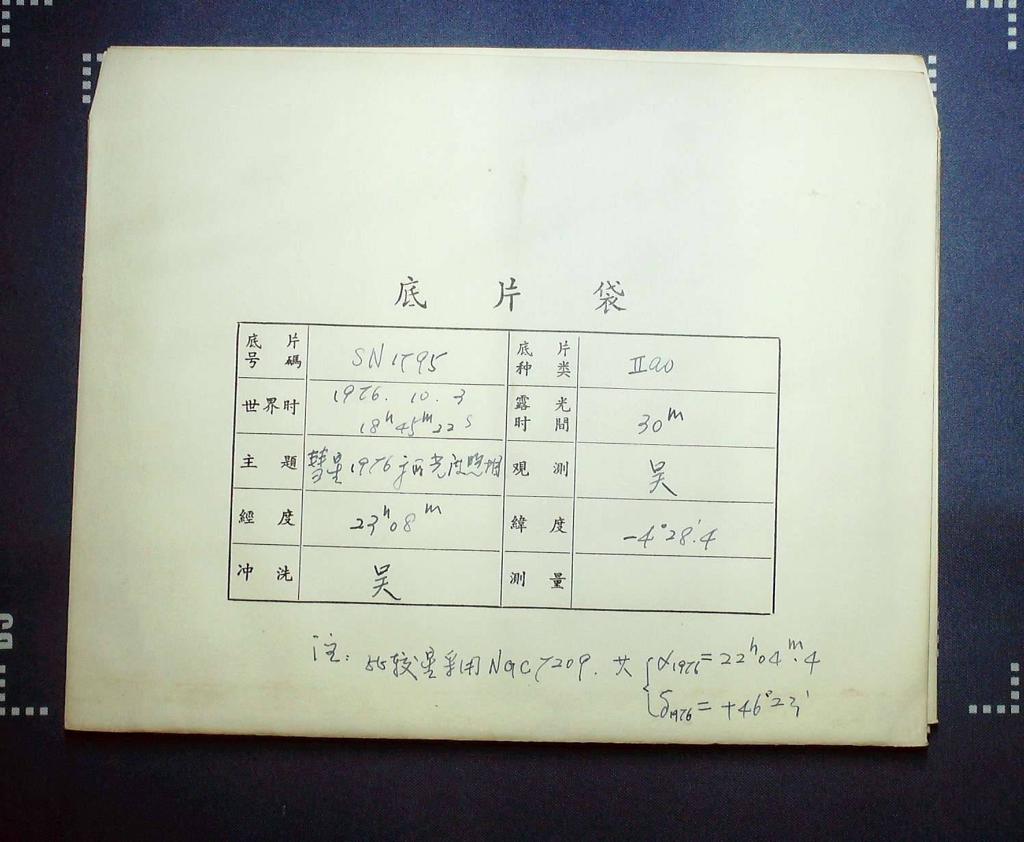 底片袋
底片号碼 SN1795 底片种类 IIao
世界时 1976. 10. 3 18ʰ45ᵐ22ˢ 露光时間 30ᵐ
主題 彗星1976 光度照相 观測 吴
經度 23ʰ08ᵐ 緯度 -4°28′.4
冲洗 吴 測量
注: 比较星采用NGC7209. 其 { α1976=22ʰ04ᵐ.4
δ1976=+46°23′